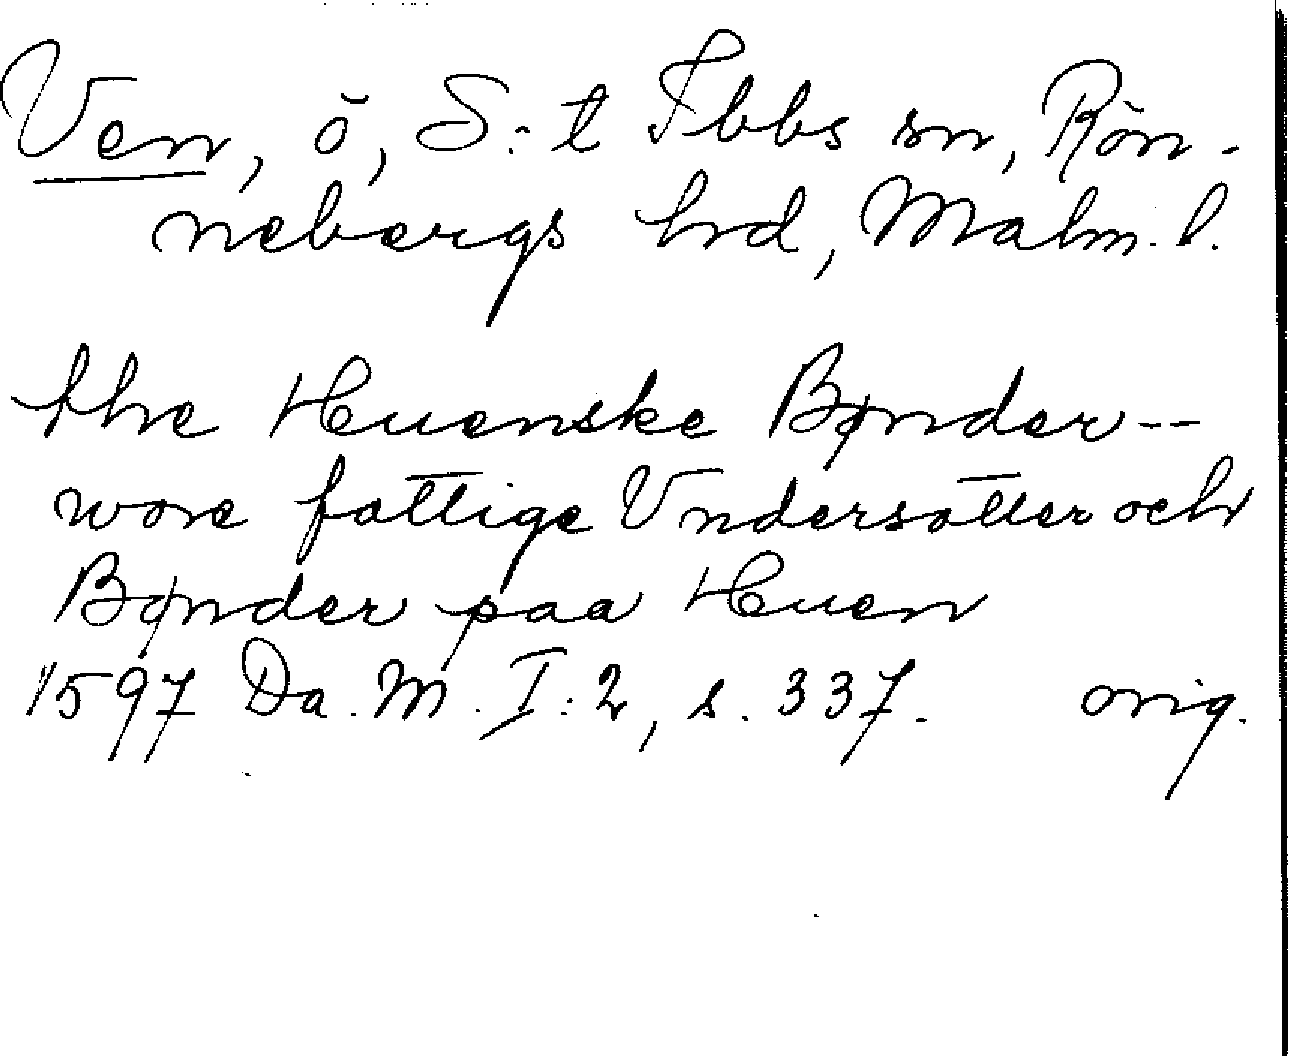 Ven, ö, S:t Ibbs sn, Rön-
nebergs hrd, Malm. l.
the Huenske Bønder--
wore fattige Vndersatter och
Bønder paa Huen
1597 Da. M. I:2, s. 337. orig.